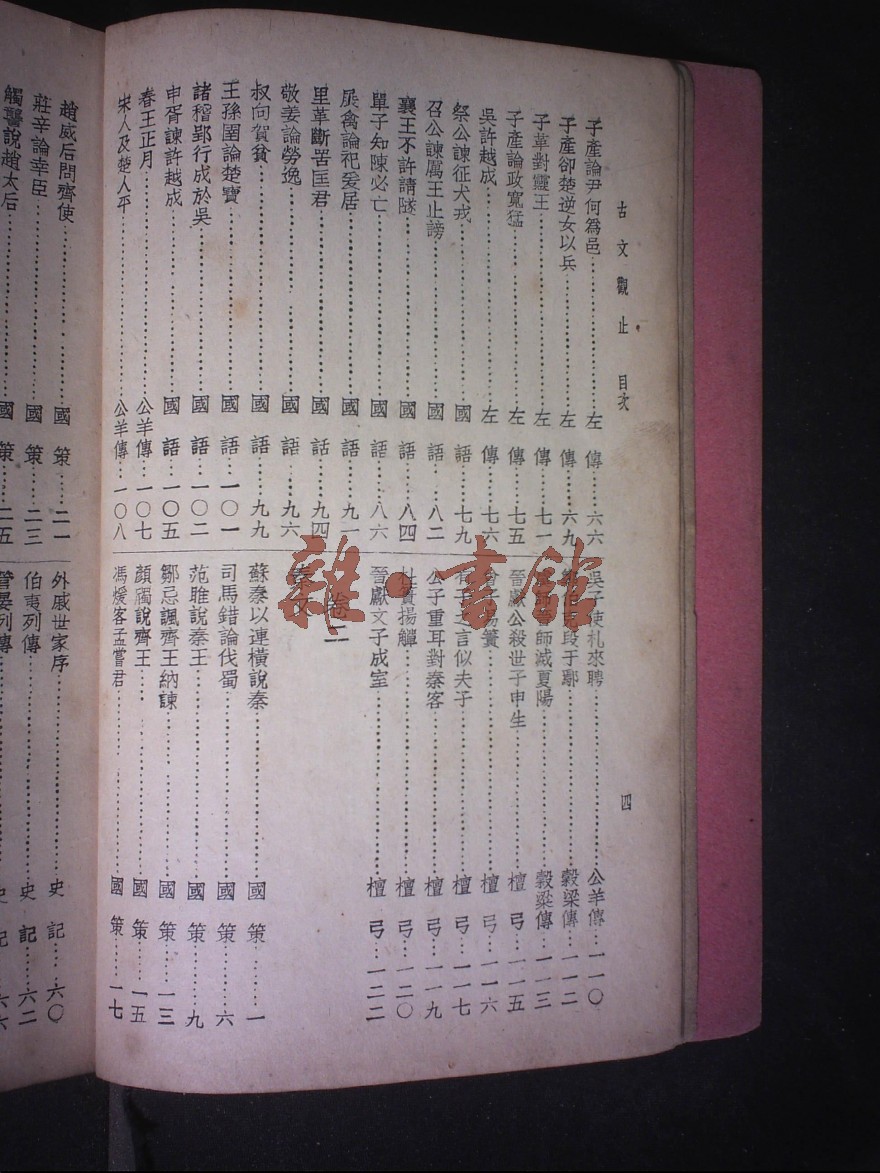 古文觀止 目次
四
子產論尹何為邑……左傳……六六
子產卻楚逆女以兵……左傳……六九
子革對靈王……左傳……七一
子產論政寬猛……左傳……七五
吳許越成……左傳……七六
祭公諫征犬戎……國語……七九
召公諫厲王止謗……國語……八二
襄王不許請隧……國語……八四
單子知陳必亡……國語……八六
展禽論祀爰居……國語……九一
里革斷罟匡君……國話……九四
敬姜論勞逸……國語……九六
叔向賀貧……國語……九九
王孫圉論楚寶……國語……一〇一
諸稽郢行成於吳……國語……一〇二
申胥諫許越成……國語……一〇五
春王正月……公羊傳……一〇七
宋人及楚人平……公羊傳……一〇八
吳子使札來聘……公羊傳……一一〇
段于鄢……穀梁傳……一一二
師師滅夏陽……穀梁傳……一一三
晉獻公殺世子申生……檀弓……一一五
易簀……檀弓……一一六
有子之言似夫子……檀弓……一一七
公子重耳對秦客……檀弓……一一九
杜蕢揚觶……檀弓……一二〇
晉獻文子成室……檀弓……一二二
卷二
秦文
蘇秦以連橫說秦……國策……一
司馬錯論伐蜀……國策……六
范雎說秦王……國策……九
鄒忌諷齊王納諫……國策……一三
顏斶說齊王……國策……一五
馮煖客孟嘗君……國策……一七
趙威后問齊使……國策……二一
莊辛論幸臣……國策……二三
觸讋說趙太后……國策……二五
外戚世家序……史記……六〇
伯夷列傳……史記……六二
管晏列傳……史記……六六
雜·書館